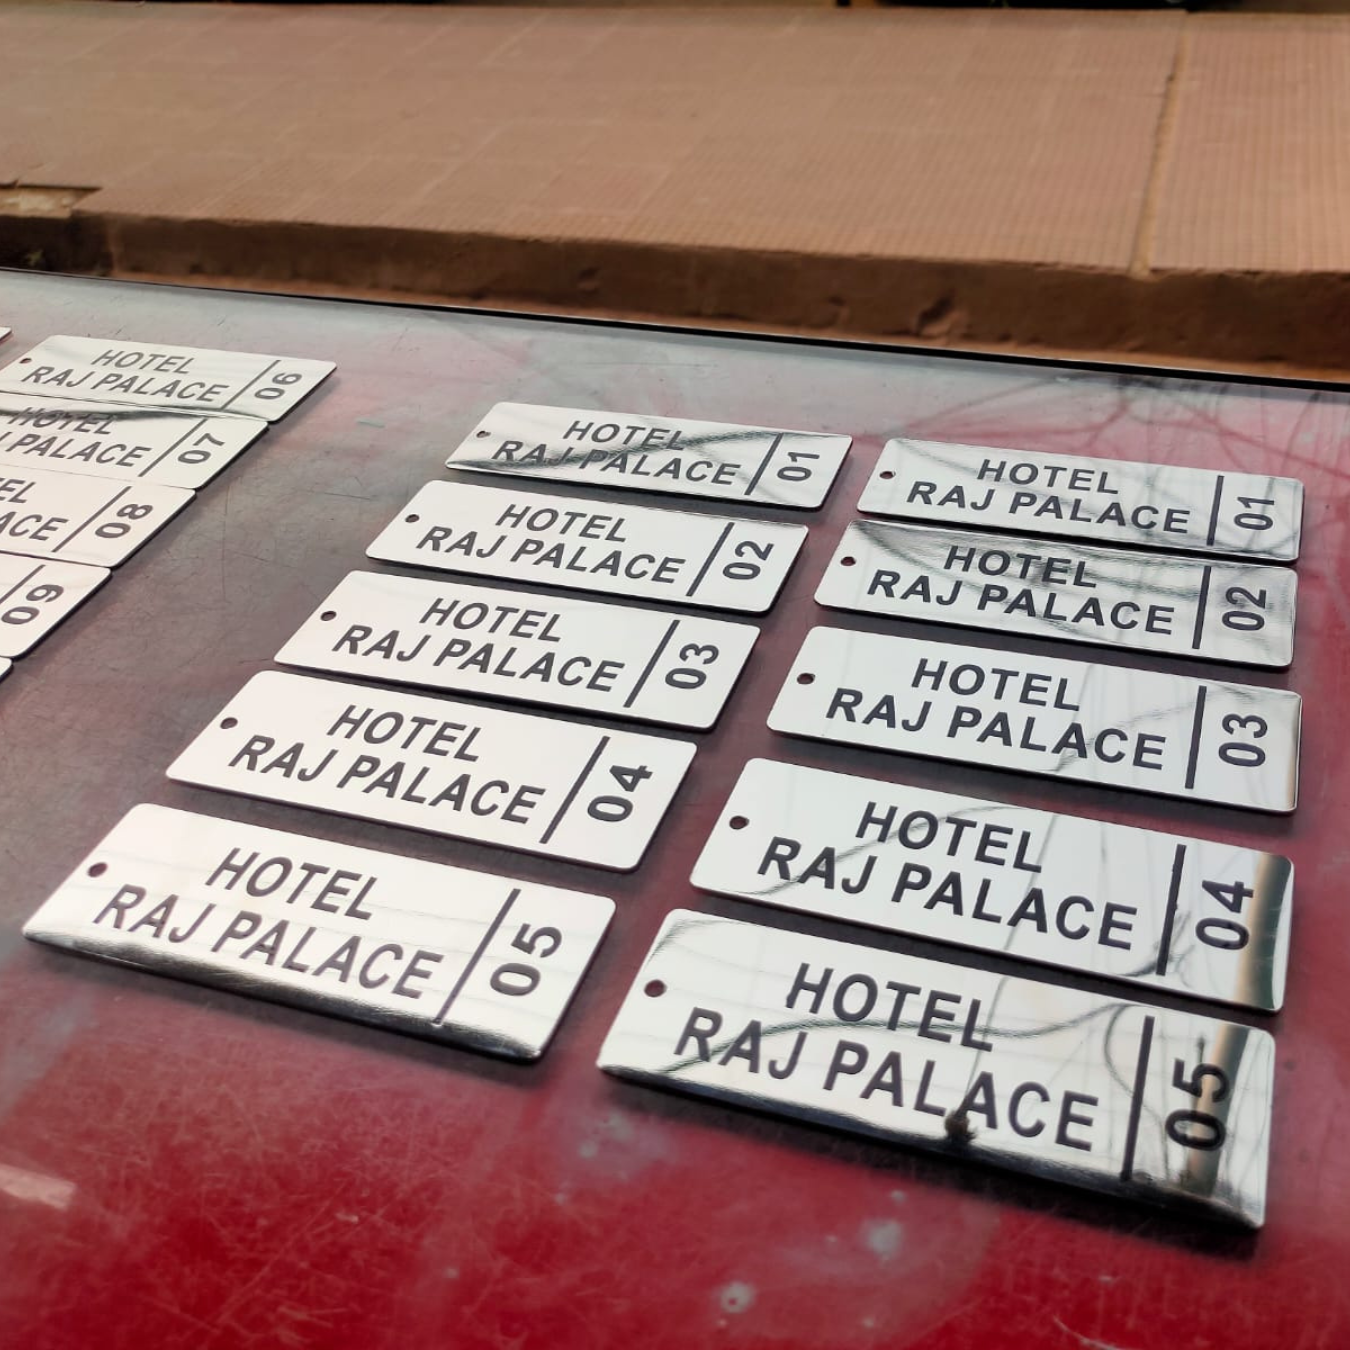 HOTEL
RAJ PALACE
06
HOTEL
PALACE
07
ACE
08
09
HOTEL
RAJ PALACE
01
HOTEL
RAJ PALACE
02
HOTEL
RAJ PALACE
03
HOTEL
RAJ PALACE
04
HOTEL
RAJ PALACE
05
HOTEL
RAJ PALACE
01
HOTEL
RAJ PALACE
02
HOTEL
RAJ PALACE
03
HOTEL
RAJ PALACE
04
HOTEL
RAJ PALACE
05